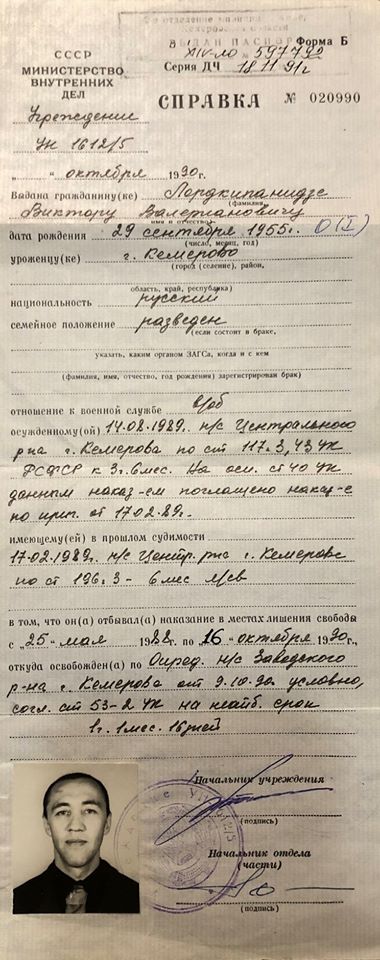 2-е отделение милиции
ВЫДАН ПАСПОРТ
Форма Б
XIV-ЛО 597790
Серия ДЧ 18.11.91г
СССР
МИНИСТЕРСТВО
ВНУТРЕННИХ
ДЕЛ
Учреждении
УН 1612/5
СПРАВКА № 020990
„ “ октября 1990 г.
Выдана гражданину(ке) Лордкипанидзе
(фамилия,
Виктору Валериановичу
имя и отчество)
дата рождения 29 сентября 1955г. 0(I)
(число, месяц, год)
уроженцу(ке) г. Кемерово
(город (селение), район,
область, край, республика)
национальность русский
семейное положение разведен
(если состоит в браке,
указать, каким органом ЗАГСа, когда и с кем
(фамилия, имя, отчество, год рождения) зарегистрирован брак)
отношение к военной службе в/об
осужденному(ой) 14.08.1989г. н/с Центрального
р-на г. Кемерова по ст 117.3, 43 УК
РСФСР к 3г. 6мес. На осн. ст 40 УК
данным наказ-ем поглощено наказ-е
по приг. от 17.02.89г.
имеющему(ей) в прошлом судимости
17.02.1989г. н/с Центр. р-на г. Кемерово
по ст 196.3 - 6 мес л/св
в том, что он(а) отбывал(а) наказание в местах лишения свободы
с „25“ мая 1988 г. по „16“ октября 1990 г.,
откуда освобожден(а) по Опред. н/с Заводского
р-на г. Кемерова от 9.10.90 условно,
согл. ст 53-2 УК на неотб. срок
1г. 1мес. 16дней
Начальник учреждения
(подпись)
Начальник отдела
(части)
(подпись)